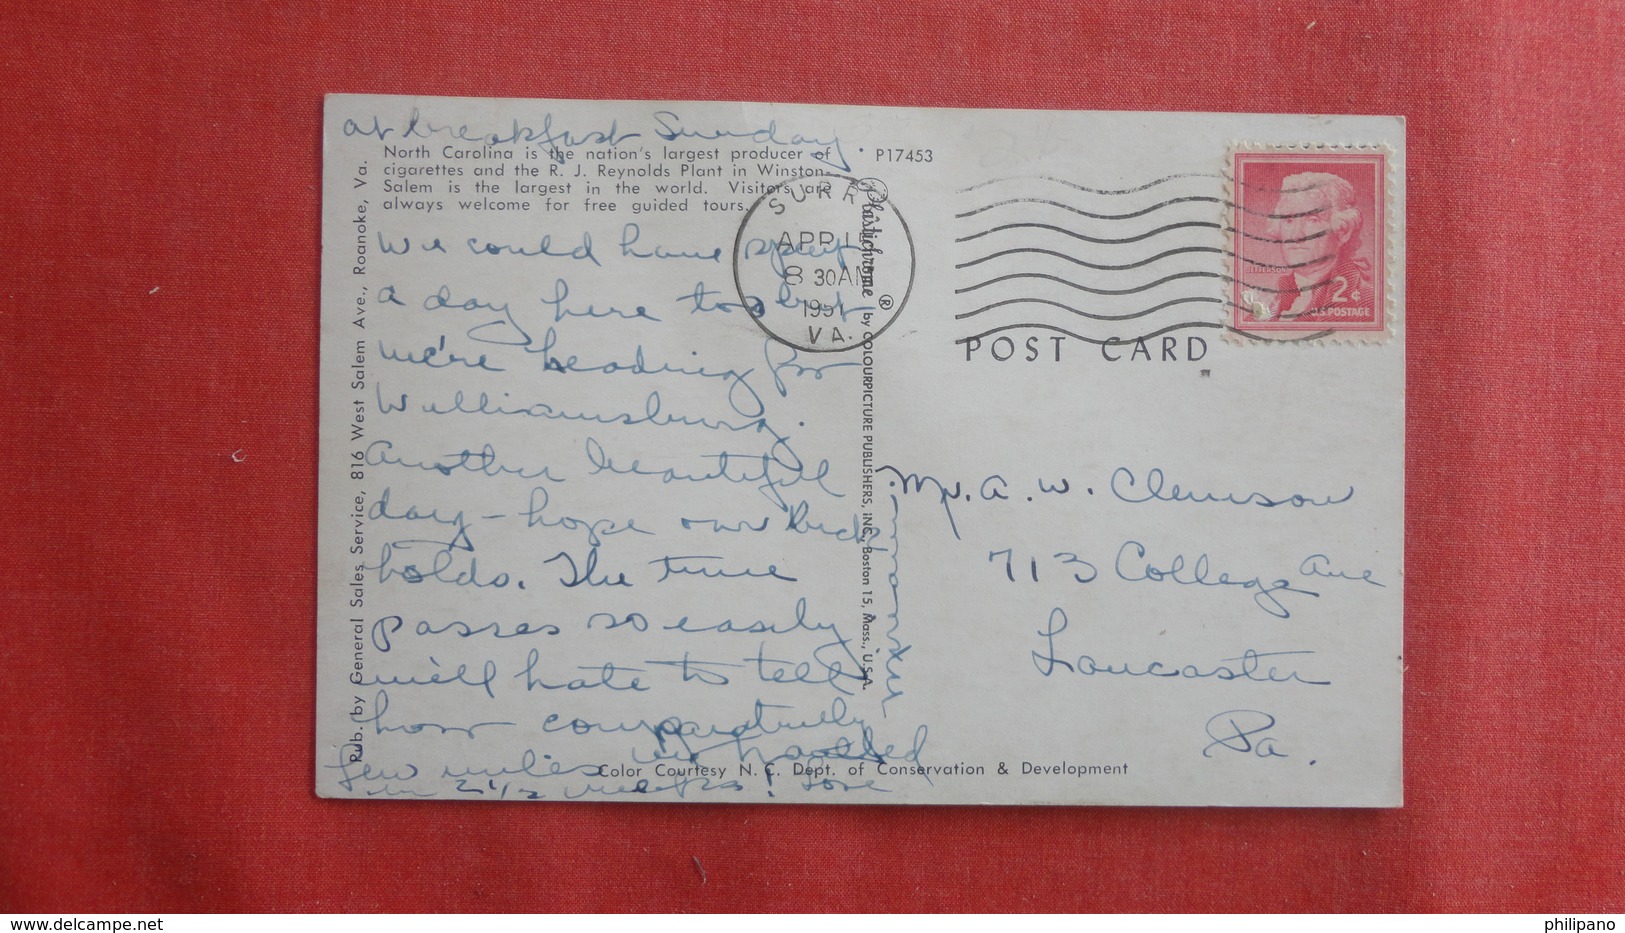 at breakfast Sunday.
North Carolina is the nation's largest producer of
cigarettes and the R. J. Reynolds Plant in Winston-
Salem is the largest in the world. Visitors are
always welcome for free guided tours.
P17453
We could have spent
a day here too but
we're heading for
Williamsburg.
Another beautiful
day - hope our luck
holds. The time
passes so easily
we'll hate to tell
how comparatively
few miles we traveled
in 2 1/2 weeks! Love
Pub. by General Sales Service, 816 West Salem Ave., Roanoke, Va.
Plastichrome ® by COLOURPICTURE PUBLISHERS, INC., Boston 15, Mass., U.S.A.
SURRY
APR 15
8 30AM
1957
VA.
POST CARD
JEFFERSON
2¢
U.S. POSTAGE
Mr. A. W. Clemson
713 College Ave
Lancaster
Pa.
Color Courtesy N. C. Dept. of Conservation & Development
delcampe.net
philipano